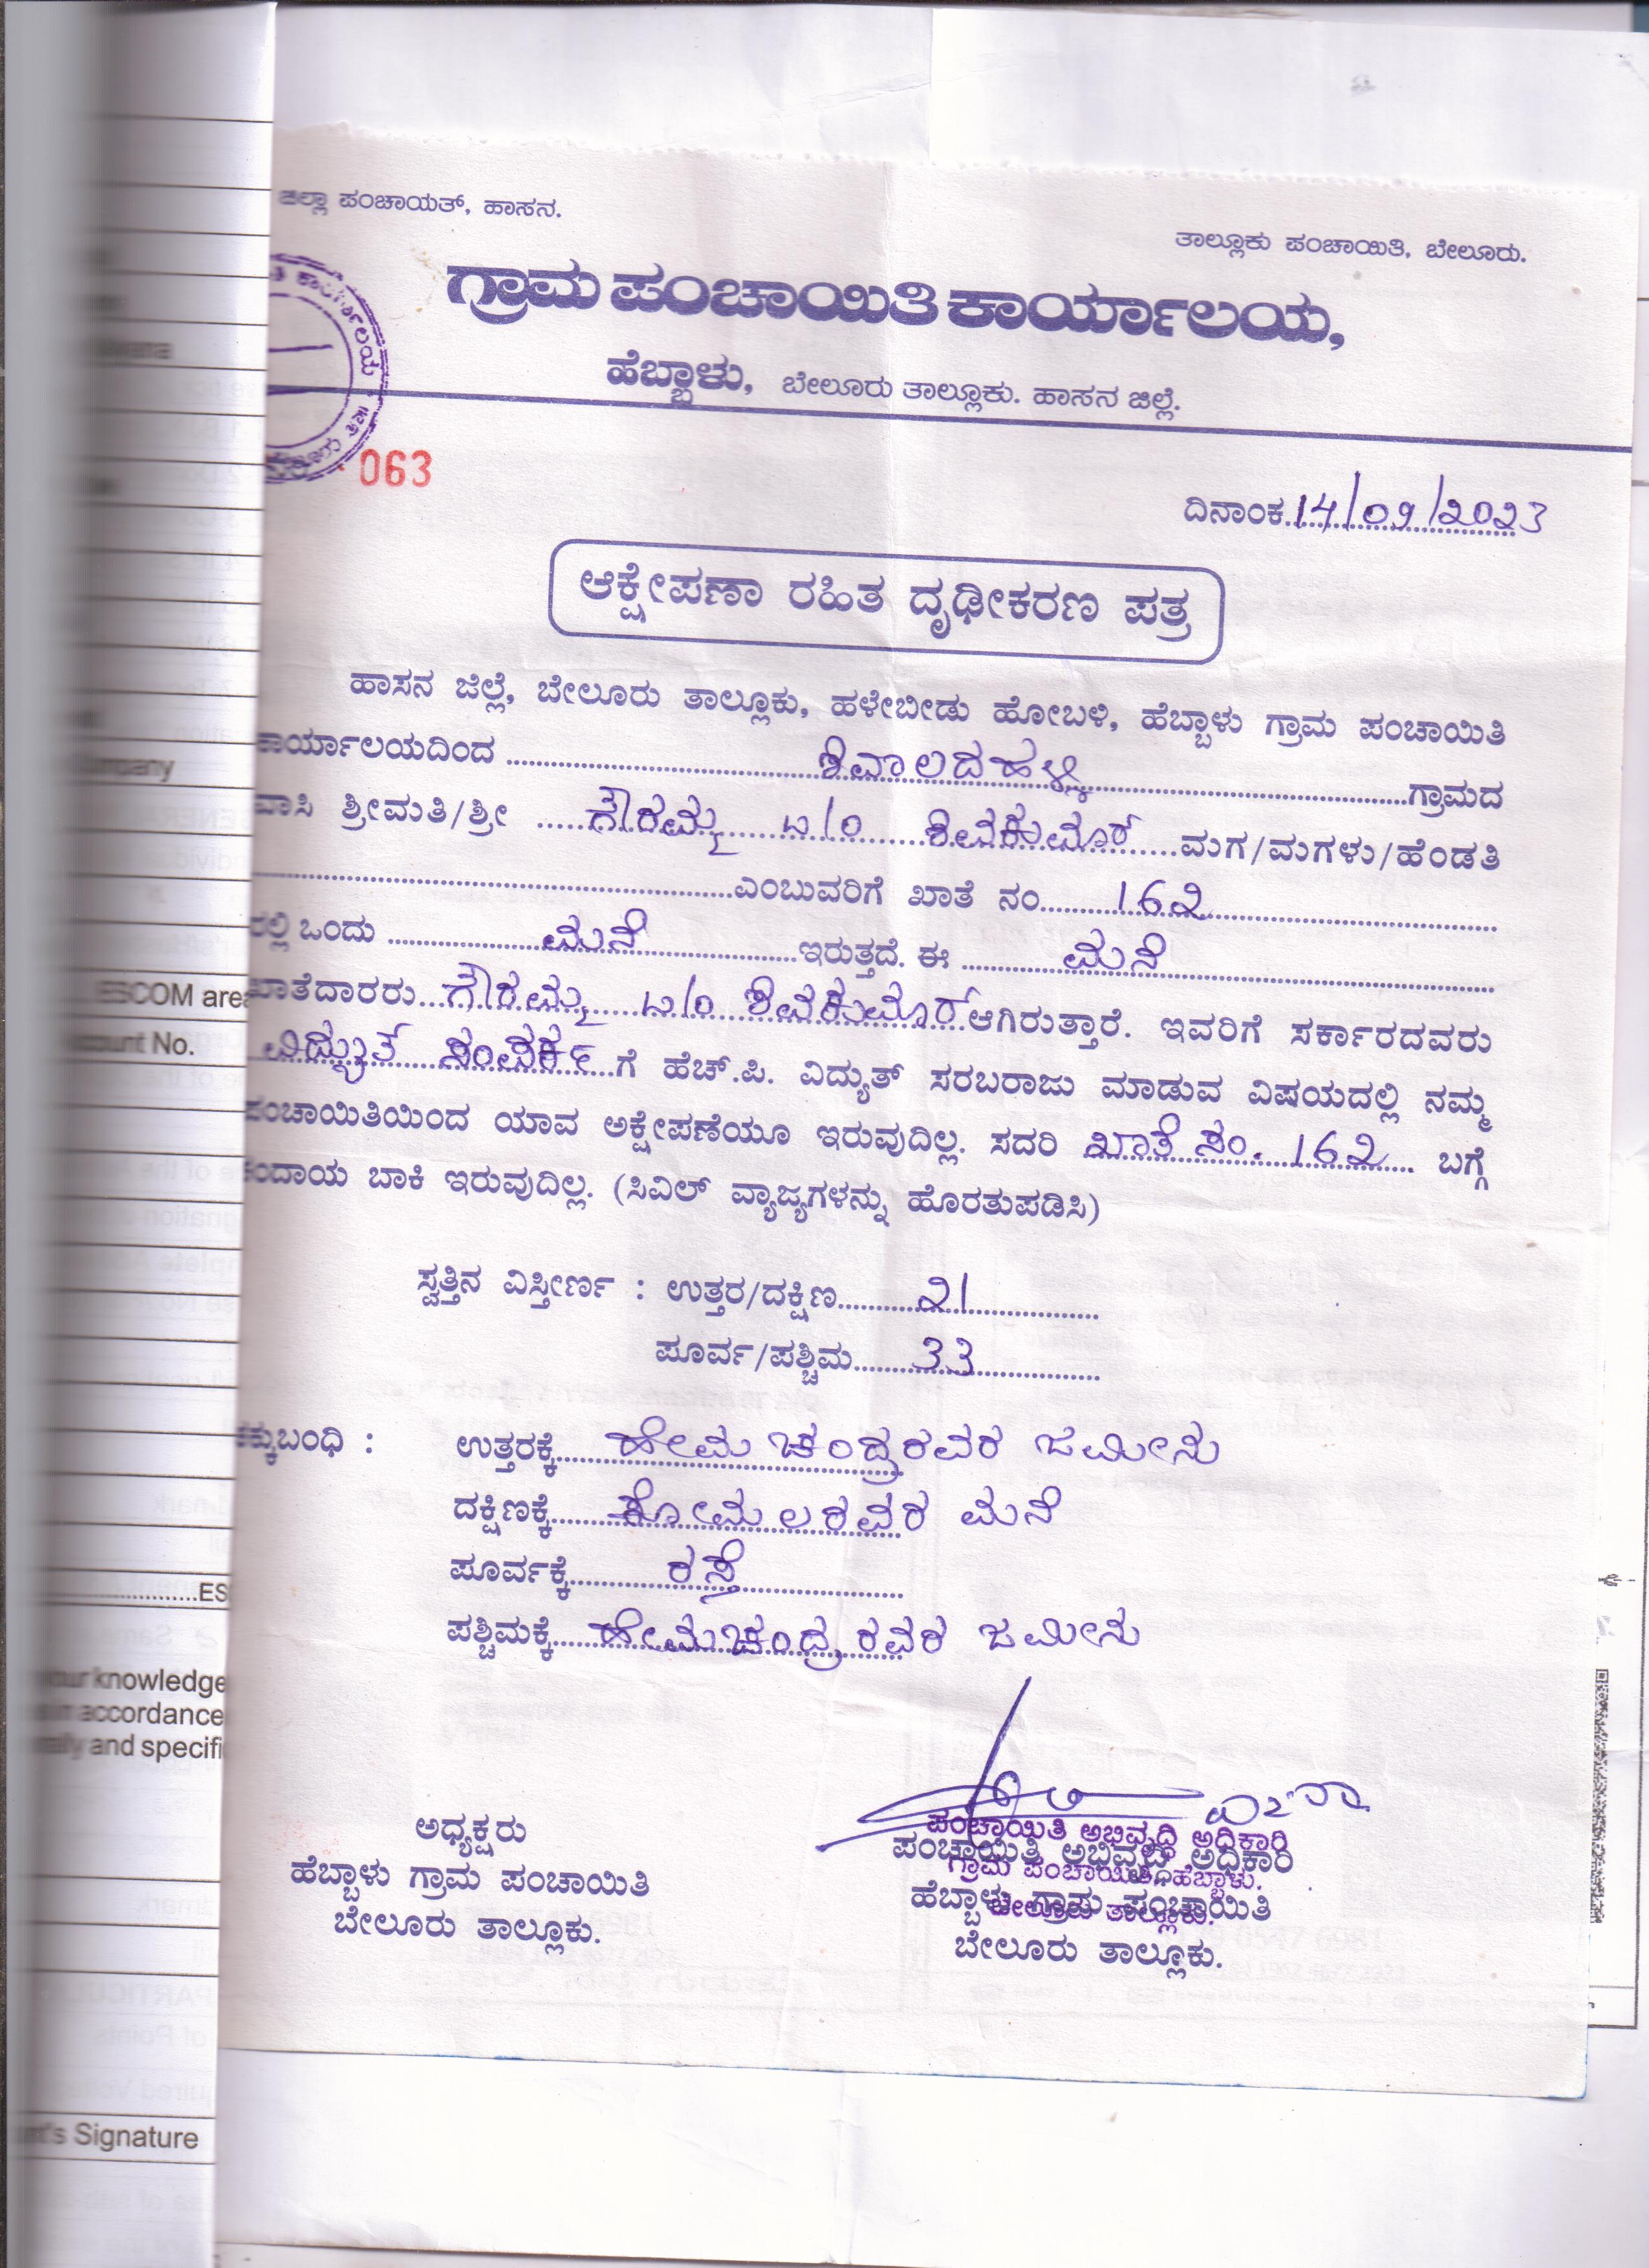 ಜಿಲ್ಲಾ ಪಂಚಾಯತ್, ಹಾಸನ.
ತಾಲ್ಲೂಕು ಪಂಚಾಯಿತಿ, ಬೇಲೂರು.
ಗ್ರಾಮ ಪಂಚಾಯಿತಿ ಕಾರ್ಯಾಲಯ,
ಹೆಬ್ಬಾಳು, ಬೇಲೂರು ತಾಲ್ಲೂಕು. ಹಾಸನ ಜಿಲ್ಲೆ.
063
ದಿನಾಂಕ 14/09/2023
ಆಕ್ಷೇಪಣಾ ರಹಿತ ದೃಢೀಕರಣ ಪತ್ರ
ಹಾಸನ ಜಿಲ್ಲೆ, ಬೇಲೂರು ತಾಲ್ಲೂಕು, ಹಳೇಬೀಡು ಹೋಬಳಿ, ಹೆಬ್ಬಾಳು ಗ್ರಾಮ ಪಂಚಾಯಿತಿ
ಕಾರ್ಯಾಲಯದಿಂದ ಶಿವಾಲದಹಳ್ಳಿ ಗ್ರಾಮದ
ವಾಸಿ ಶ್ರೀಮತಿ/ಶ್ರೀ ಗೌರಮ್ಮ W/O ಶಿವಕುಮಾರ್ ಮಗ/ಮಗಳು/ಹೆಂಡತಿ
ಎಂಬುವರಿಗೆ ಖಾತೆ ನಂ 162
ರಲ್ಲಿ ಒಂದು ಮನೆ ಇರುತ್ತದೆ. ಈ ಮನೆ
ಖಾತೆದಾರರು ಗೌರಮ್ಮ W/O ಶಿವಕುಮಾರ್ ಆಗಿರುತ್ತಾರೆ. ಇವರಿಗೆ ಸರ್ಕಾರದವರು
ವಿದ್ಯುತ್ ಸಂಪರ್ಕ ಗೆ ಹೆಚ್.ಪಿ. ವಿದ್ಯುತ್ ಸರಬರಾಜು ಮಾಡುವ ವಿಷಯದಲ್ಲಿ ನಮ್ಮ
ಪಂಚಾಯಿತಿಯಿಂದ ಯಾವ ಅಕ್ಷೇಪಣೆಯೂ ಇರುವುದಿಲ್ಲ. ಸದರಿ ಖಾತೆ ನಂ. 162 ಬಗ್ಗೆ
ಕಂದಾಯ ಬಾಕಿ ಇರುವುದಿಲ್ಲ. (ಸಿವಿಲ್ ವ್ಯಾಜ್ಯಗಳನ್ನು ಹೊರತುಪಡಿಸಿ)
ಸ್ವತ್ತಿನ ವಿಸ್ತೀರ್ಣ : ಉತ್ತರ/ದಕ್ಷಿಣ 21
ಪೂರ್ವ/ಪಶ್ಚಿಮ 33
ಚಕ್ಕುಬಂಧಿ : ಉತ್ತರಕ್ಕೆ ಹೇಮಚಂದ್ರರವರ ಜಮೀನು
ದಕ್ಷಿಣಕ್ಕೆ ಕೋಮಲರವರ ಮನೆ
ಪೂರ್ವಕ್ಕೆ ರಸ್ತೆ
ಪಶ್ಚಿಮಕ್ಕೆ ಹೇಮಚಂದ್ರರವರ ಜಮೀನು
ಅಧ್ಯಕ್ಷರು
ಹೆಬ್ಬಾಳು ಗ್ರಾಮ ಪಂಚಾಯಿತಿ
ಬೇಲೂರು ತಾಲ್ಲೂಕು.
ಪಂಚಾಯಿತಿ ಅಭಿವೃದ್ಧಿ ಅಧಿಕಾರಿ
ಗ್ರಾಮ ಪಂಚಾಯಿತಿ, ಹೆಬ್ಬಾಳು.
ಬೇಲೂರು ತಾಲ್ಲೂಕು.
ಪಂಚಾಯಿತಿ ಅಭಿವೃದ್ಧಿ ಅಧಿಕಾರಿ
ಹೆಬ್ಬಾಳು ಗ್ರಾಮ ಪಂಚಾಯಿತಿ
ಬೇಲೂರು ತಾಲ್ಲೂಕು.
ESCOM area
Account No.
ES
knowledge
accordance
and specifi
Signature